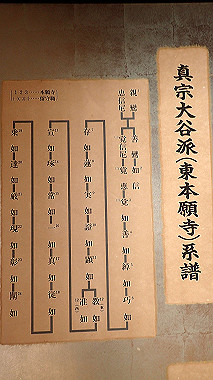 真宗大谷派(東本願寺)系譜
親鸞 善鸞 如信
恵信尼 覚信尼 覚恵 覚如 善如 綽如 巧如
存如 蓮如 実如 證如 顕如 教如
准如
宣如 琢如 常如 一如 真如 従如
乗如 達如 厳如 現如 彰如 闡如